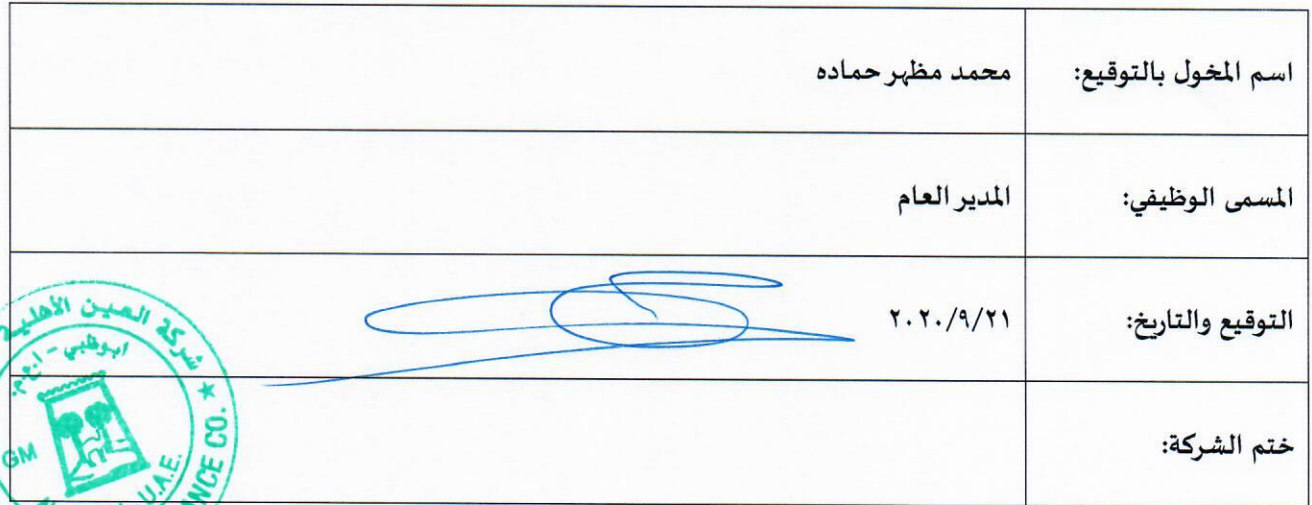 اسم المخول بالتوقيع: محمد مظهر حماده
المسمى الوظيفي: المدير العام
التوقيع والتاريخ: ٢٠٢٠/٩/٢١
ختم الشركة:
شركة العين الأهلية
ابوظبي - ا.ع.م.
GM
U.A.E.
CO.